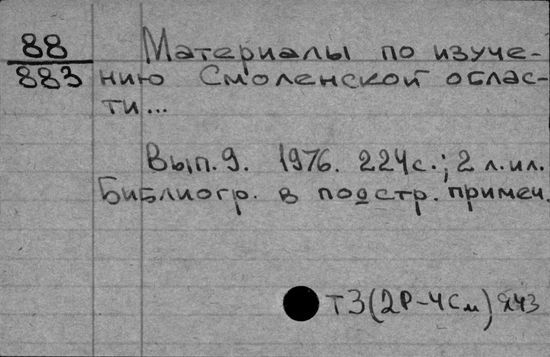 88
883
Материалы по изуче-
нию Смоленской облас-
ти...
Вып. 9. 1976. 224с.; 2 л. ил.
Библиогр. в подстр. примеч.
Т3(2Р-4См)